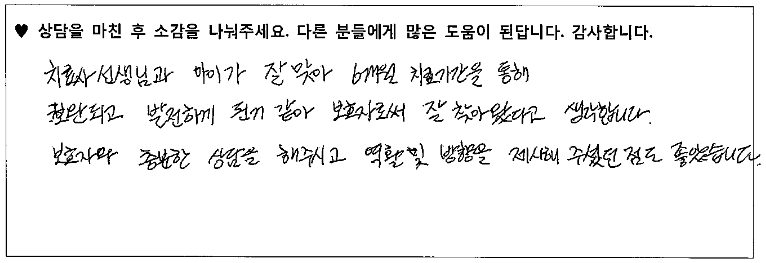 ♥ 상담을 마친 후 소감을 나눠주세요. 다른 분들에게 많은 도움이 된답니다. 감사합니다.
치료사선생님과 아이가 잘 맞아 6개월 치료기간을 통해
발전하게 된거 같아 보호자로써 잘 찾아왔다고 생각합니다.
보호자와 충분한 상담을 해주시고 역할 및 방향을 제시해 주셨던 점도 좋았습니다.